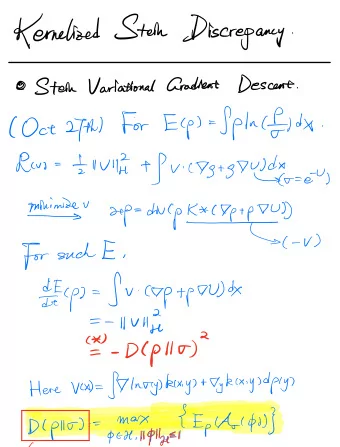 Kernelized Stein Discrepancy.
• Stein Variational Gradient Descent.
(Oct 27th) For E(ρ) = ∫ρ ln(ρ/σ) dx.
R(v) = 1/2 ||v||²_H + ∫ v·(∇ρ + ρ∇U) dx
→ (σ = e^{-U})
minimize v → ∂tρ = div(ρ K*(∇ρ + ρ∇U))
→ (-v)
For such E,
dE/dt (ρ) = ∫ v·(∇ρ + ρ∇U) dx
= -||v||²_H
(*) = -D(ρ||σ)²
Here v(x) = ∫ ∇ln σ(y) k(x,y) + ∇y k(x,y) dρ(y)
D(ρ||σ) = max_{φ∈H, ||φ||_H≤1} { E_ρ(A_σ(φ)) }